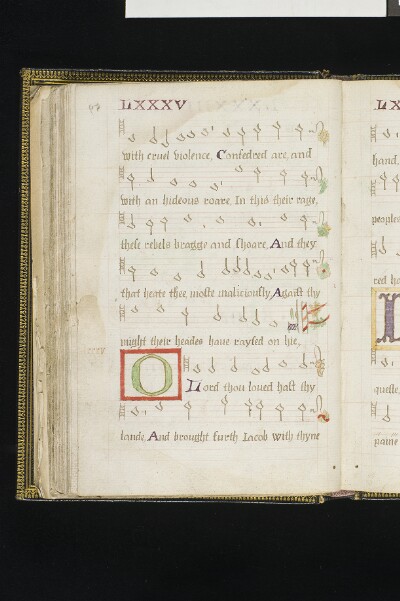 LXXXV
with cruel violence, Confedred are, and
with an hideous roare. In this their rage,
these rebels bragge and shoare, And they
that heate thee moste maliciously Agaist thy
might their heades haue raysed on hie,
O Lord thou loued hast thy
lande, And brought furth Iacob with thyne
LX
hand,
peoples
red ha
quelle
paine